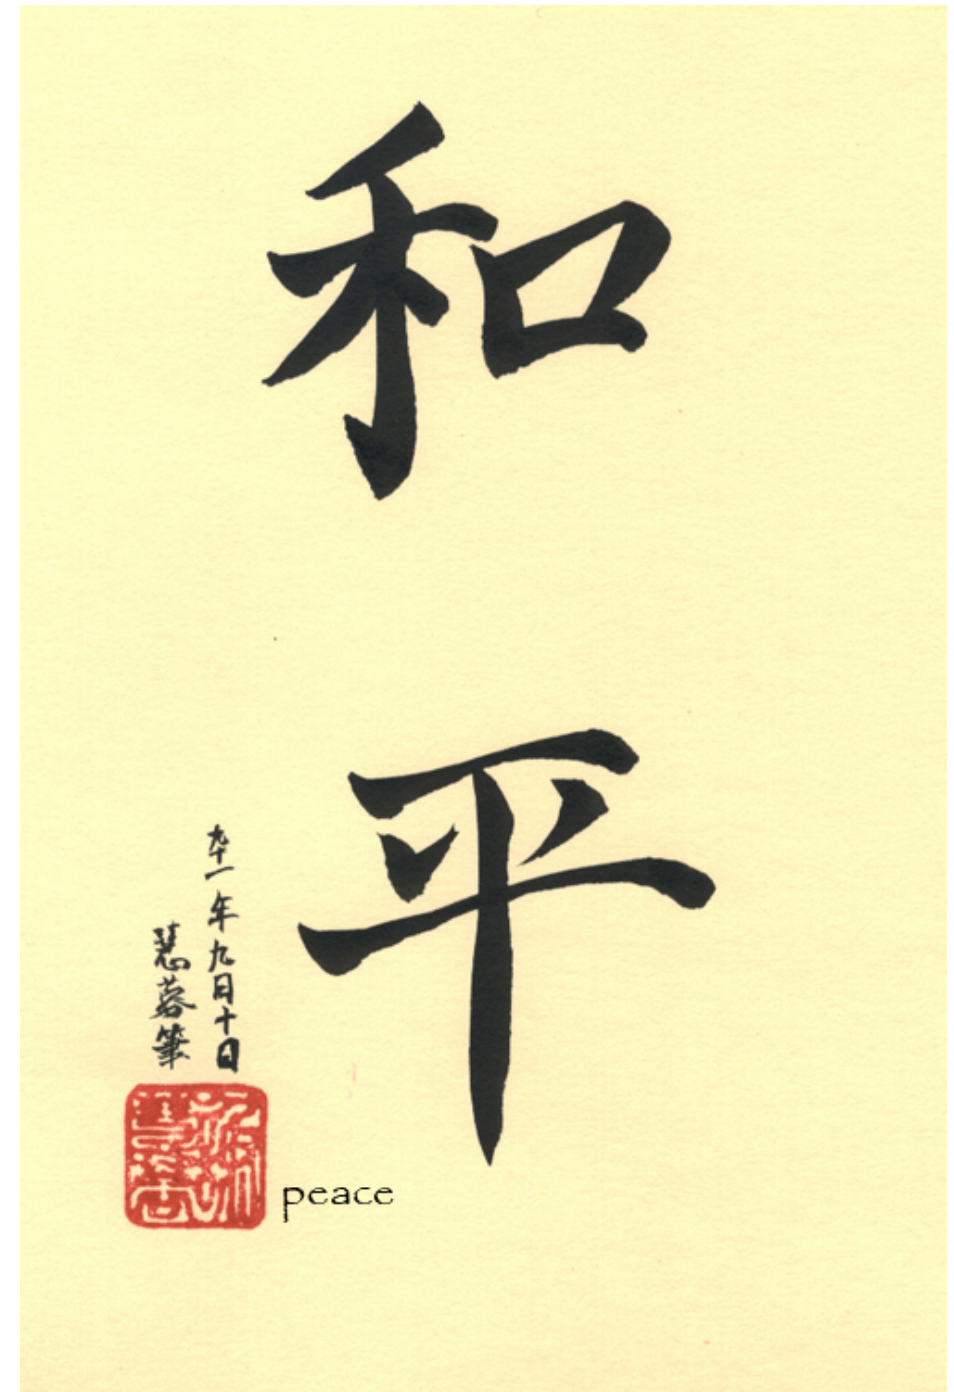 和平
九十一年九月十日
慧蓉筆
peace